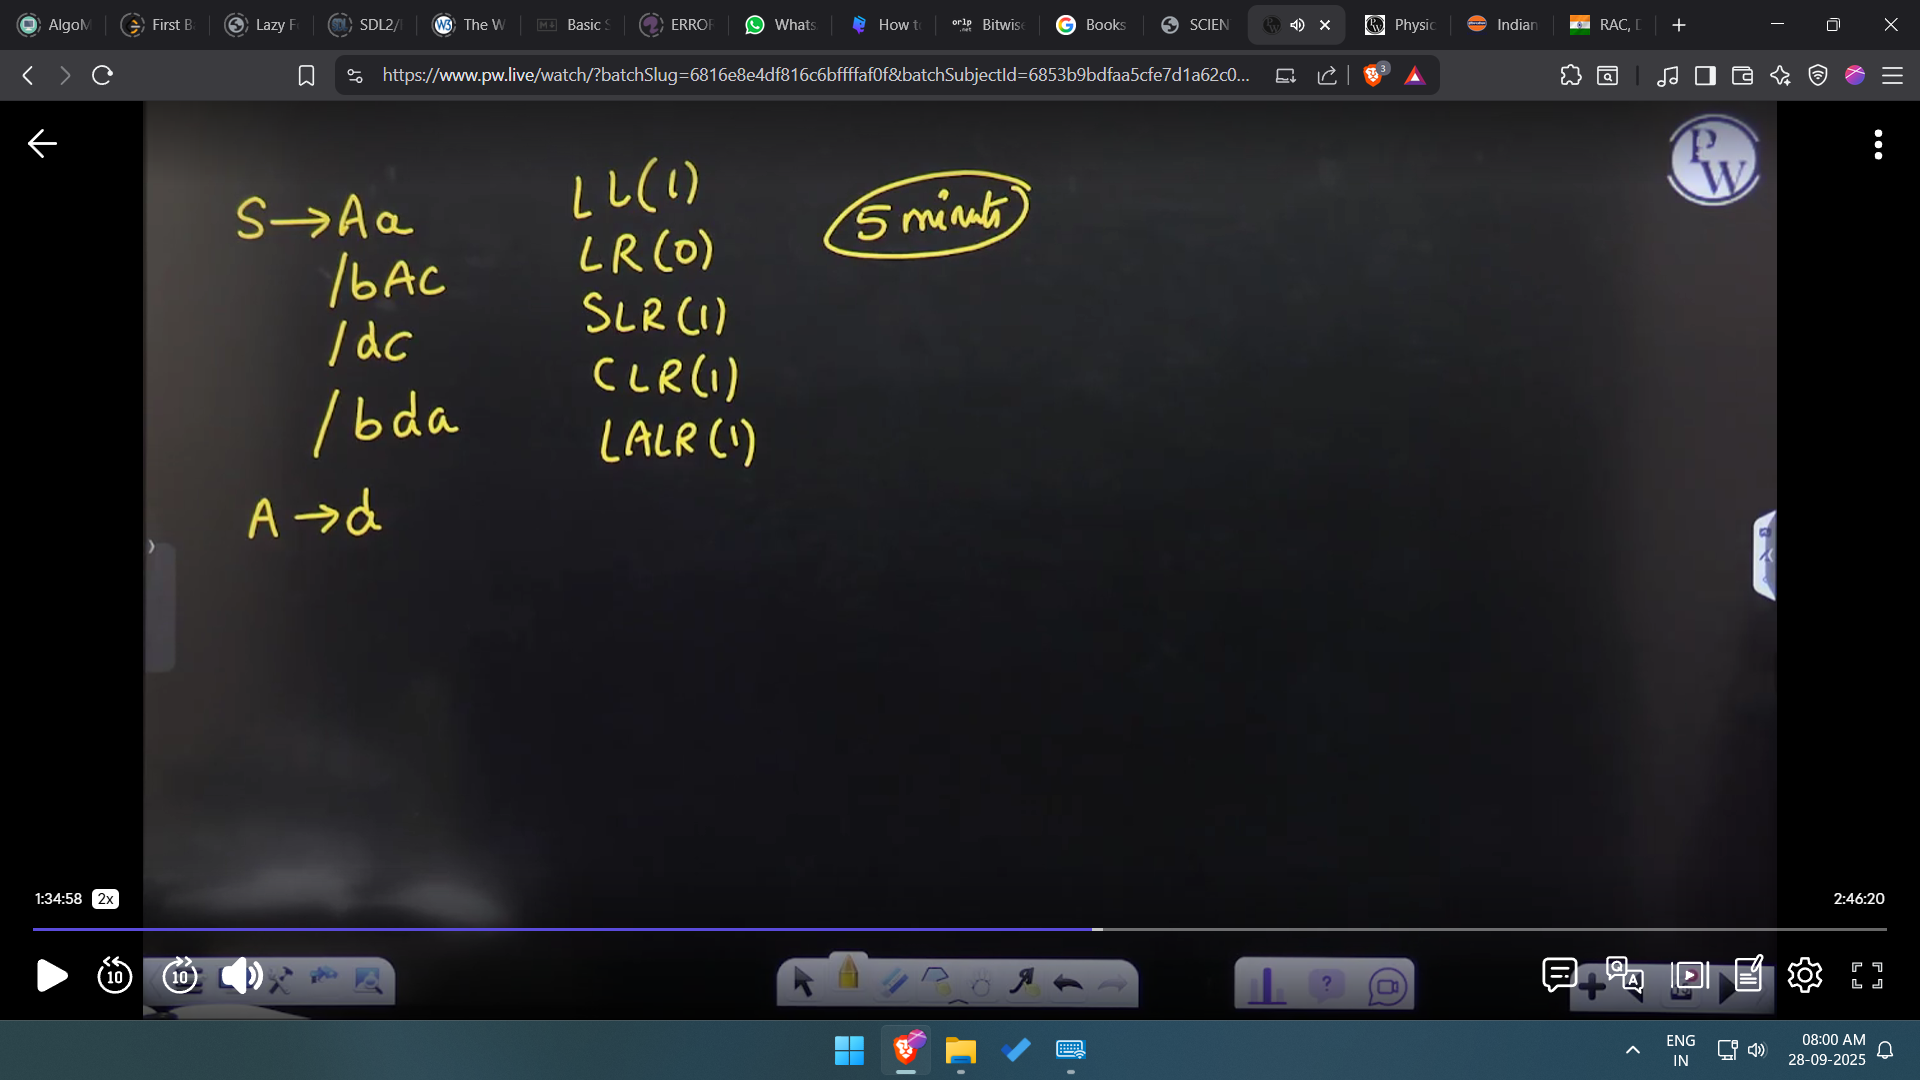 AlgoM
First B
Lazy F
SDL2/
The W
Basic S
ERROR
Whats
How to
orlp .net Bitwise
Books
SCIEN
Physic
Indian
RAC, D
https://www.pw.live/watch/?batchSlug=6816e8e4df816c6bffffaf0f&batchSubjectId=6853b9bdfaa5cfe7d1a62c0...
3
PW
S→Aa
/bAc
/dc
/bda
A→d
LL(1)
LR(0)
SLR(1)
CLR(1)
LALR(1)
5 minuts
1:34:58 2x
2:46:20
10
10
Q A
ENG
IN
08:00 AM
28-09-2025